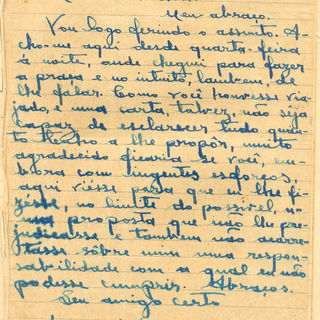 seu abraço.
Vou logo ferindo o assunto. A-
cho-me aqui desde quarta-feira
à noite, onde cheguei para fazer
a praça e no intuito, tambem, de
lhe falar. Como você houvesse via-
jado, e uma carta, talvez, não seja
capaz de esclarecer tudo quan-
to tenho a lhe propôr, muito
agradecido ficaria se você, em-
bora com ingentes esforços,
aqui viésse para que eu lhe fi-
zésse, no limite do possivel, u-
ma proposta que não lhe pre-
judicasse e tambem não acarre-
tasse sôbre mim uma respon-
sabilidade com a qual eu não
podesse cumprir. Abraços.
Seu amigo certo